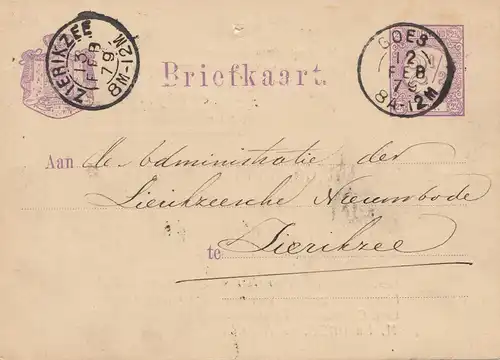 ZIERIKZEE
13
FEB
79
8M-12M
GOES
12
FEB
79
8A-12M
Briefkaart.
Aan de Administratie der
Zierikzeesche Nieuwsbode
te Zierikzee